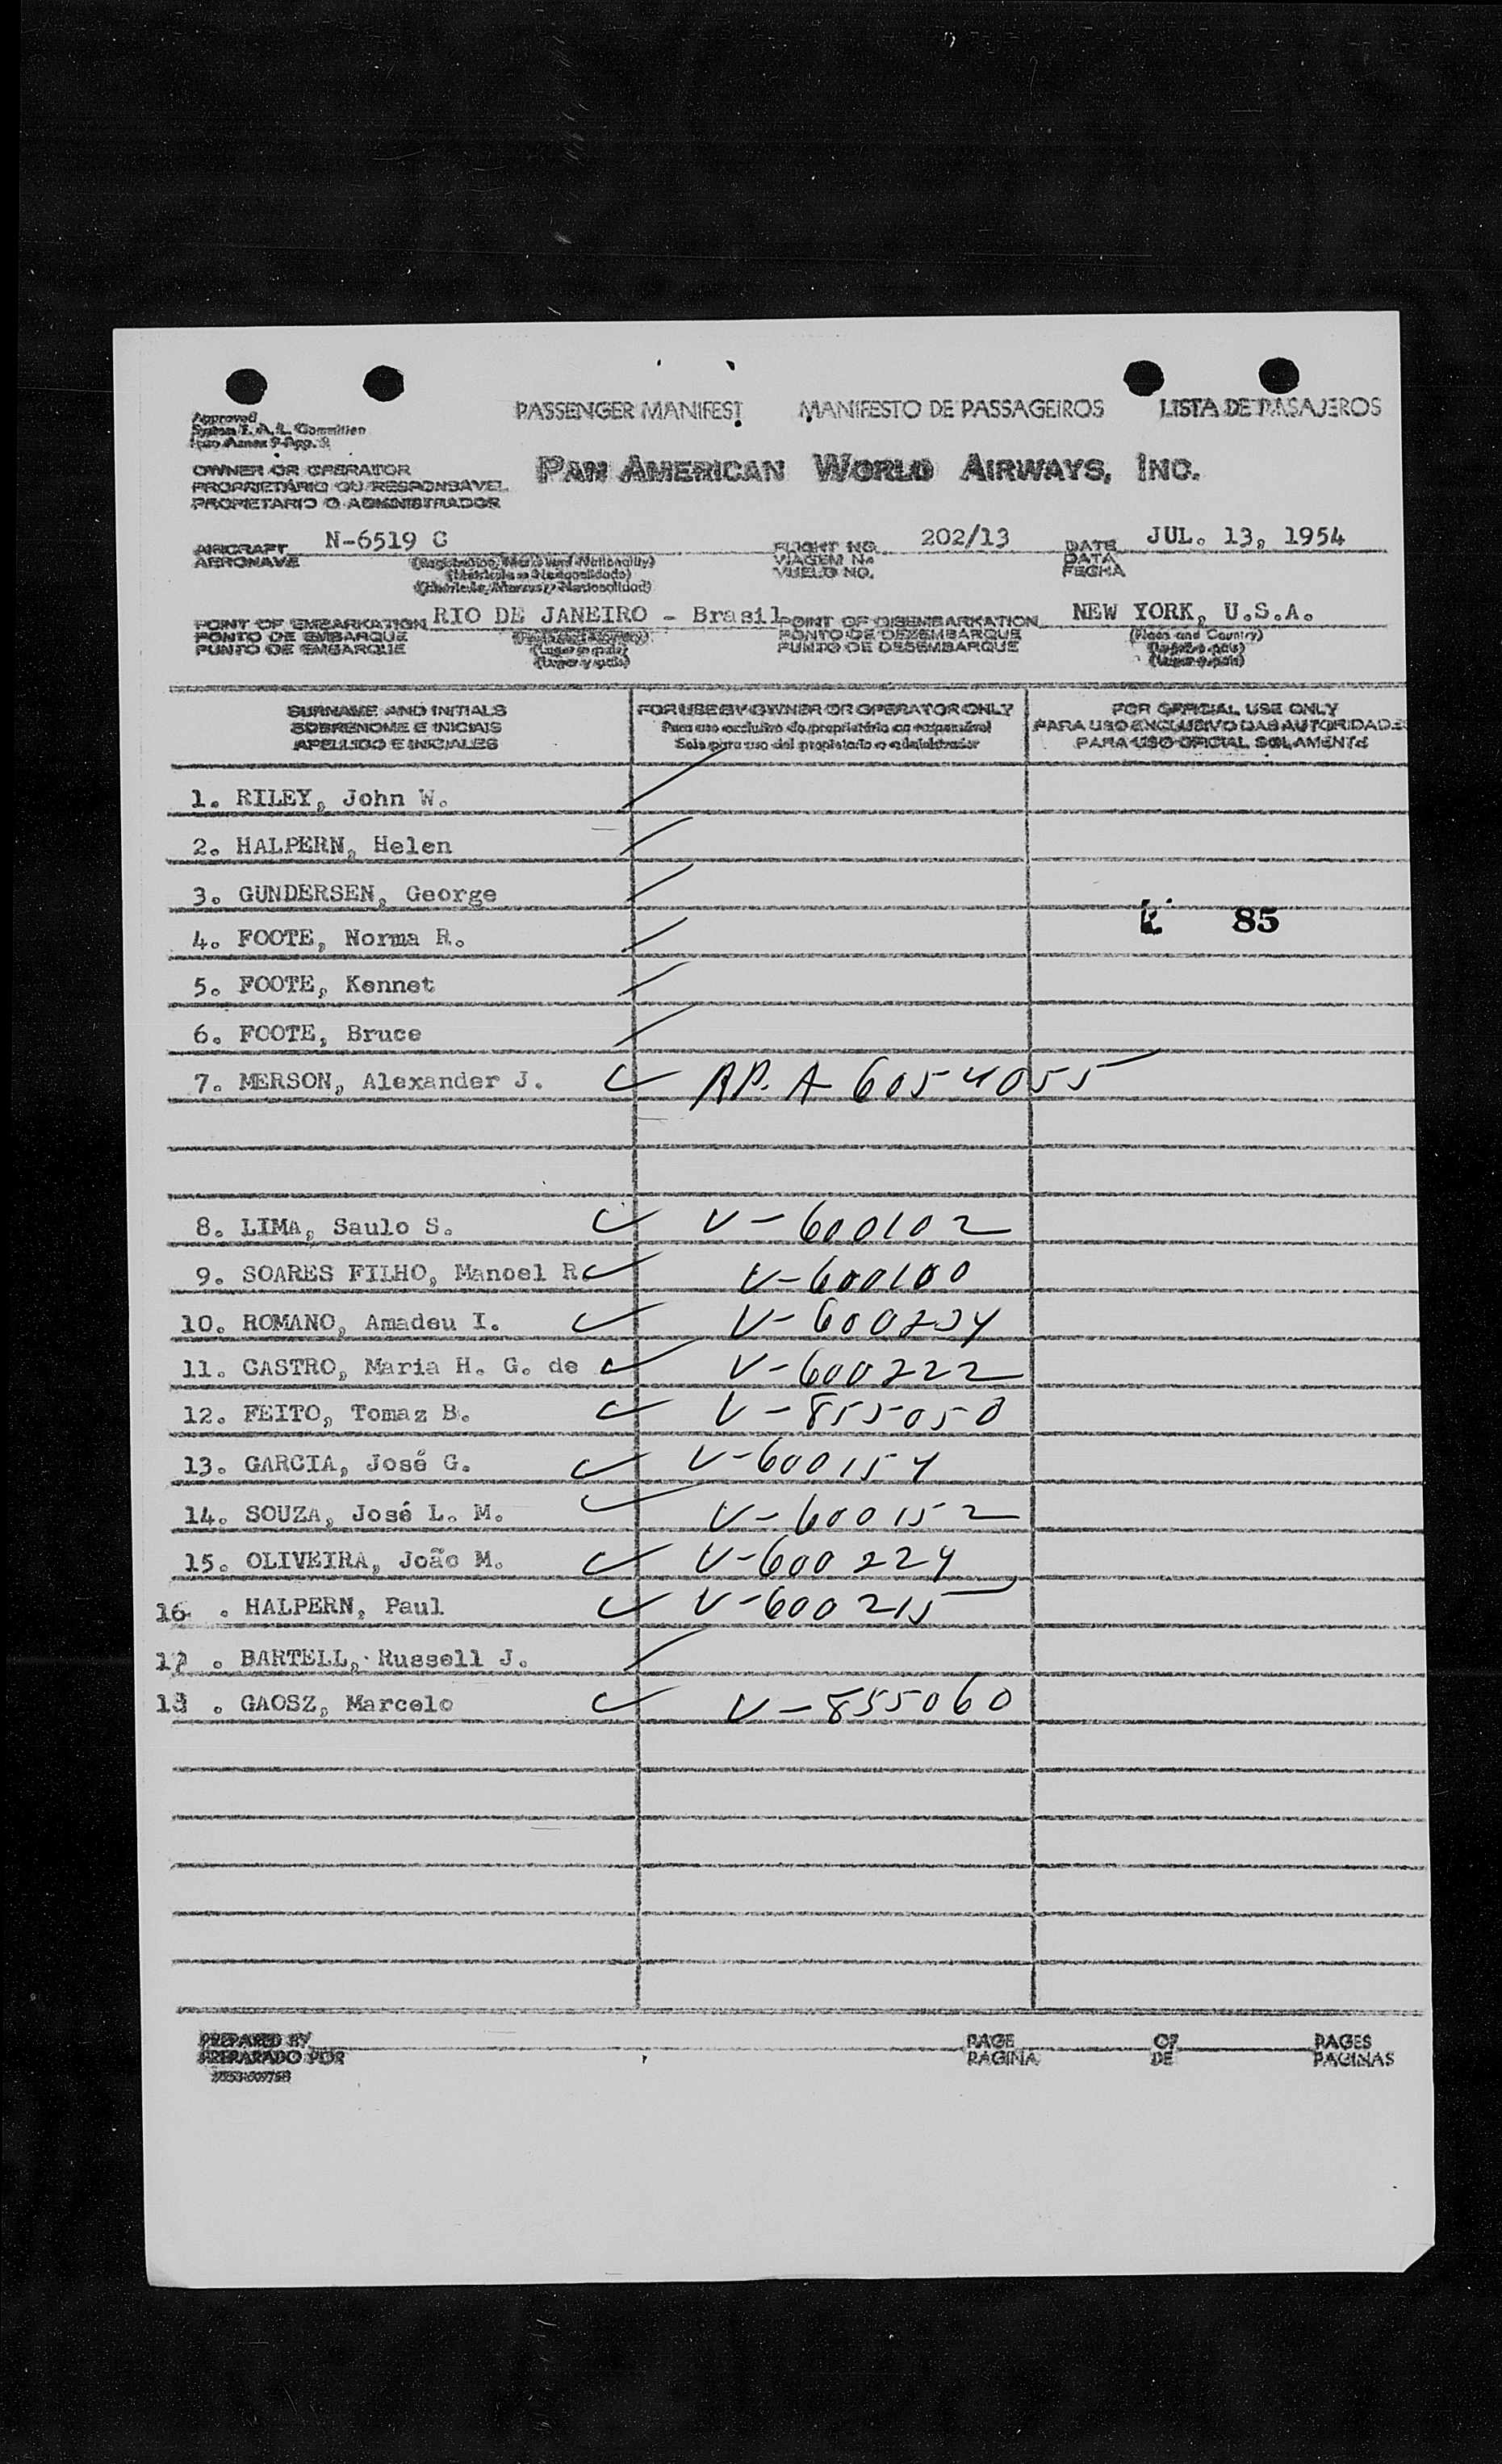 PASSENGER MANIFEST MANIFESTO DE PASSAGEIROS LISTA DE PASAJEROS
Approved
OWNER OR OPERATOR
PROPRIETÁRIO OU RESPONSAVEL
PROPIETARIO O ADMINISTRADOR
PAN AMERICAN WORLD AIRWAYS, INC.
AIRCRAFT N-6519 C FLIGHT NO. 202/13 DATE JUL. 13, 1954
AERONAVE VIAGEM No DATA
VUELO NO. FECHA
POINT OF EMBARKATION RIO DE JANEIRO - Brasil POINT OF DISEMBARKATION NEW YORK, U.S.A.
PONTO DE EMBARQUE PONTO DE DEZEMBARQUE (Place and Country)
PUNTO DE EMBARQUE PUNTO DE DESEMBARQUE
SURNAME AND INITIALS FOR USE BY OWNER OR OPERATOR ONLY FOR OFFICIAL USE ONLY
SOBRENOME E INICIAIS Para uso exclusivo do proprietário ou responsável PARA USO EXCLUSIVO DAS AUTORIDADES
APELLIDO E INICIALES Solo para uso del propietario o administrador PARA USO OFICIAL SOLAMENTE
1. RILEY, John W.
2. HALPERN, Helen
3. GUNDERSEN, George
85
4. FOOTE, Norma R.
5. FOOTE, Kennet
6. FOOTE, Bruce
7. MERSON, Alexander J. RP. A 6054055
8. LIMA, Saulo S. V-600102
9. SOARES FILHO, Manoel R. V-600100
10. ROMANO, Amadeu I. V-600234
11. CASTRO, Maria H. G. de V-600222
12. FEITO, Tomaz B. V-855050
13. GARCIA, José G. V-600154
14. SOUZA, José L. M. V-600152
15. OLIVEIRA, João M. V-600224
16 . HALPERN, Paul V-600215
17 . BARTELL, Russell J.
18 . GAOSZ, Marcelo V-855060
PREPARED BY PAGE OF PAGES
PREPARADO POR PAGINA DE PAGINAS